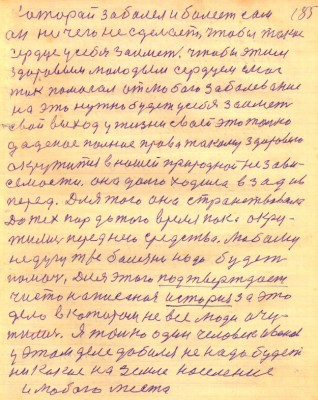 который заболел и болеет сам 185
он ничего не сделает, чтобы такое
сердце у себя заимет. чтобы этим
здоровым молодым сердцем смог
так помогал от любого заболевание
на это нужно будет у себя заимет
свой выход у жизни своей это только
даденое полные права такому здоровию
окружится в нашей природной незави
семости. она долго ходила в зад и в
перед. Для того она странствовала
До тех пор до того время пока окру
жилися переднего средство. Любому
недугу т бе болезни надо будет
помоч, Для этого подтверждает
чисто написаная история за это
дело в котором не все люди очу
тилися. Я только один человек
у этом деле добился не надо будет
ни какое на земле население
и любого места